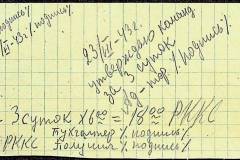 подпись%
/III-43г. % подпись%
23/III-43г.
утверждаю команд
за 3 суток
% подпись %
3 суток х 6 00 = 18 00 РККС
Бухгалтер % подпись %
РККС Получил % подпись %